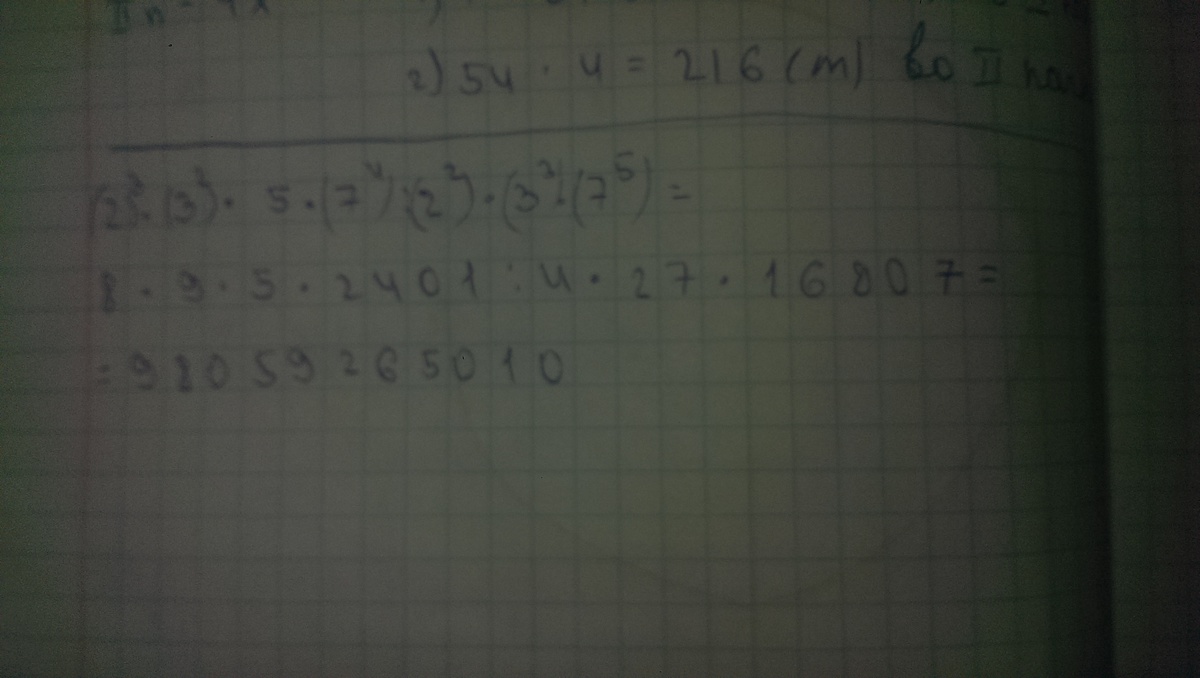 II п
2) 54 · 4 = 216 (т) во II
(2³) · (3²) · 5 · (7⁴) : (2²) · (3³) · (7⁵) =
8 · 9 · 5 · 2401 : 4 · 27 · 16807 =
= 98059265010